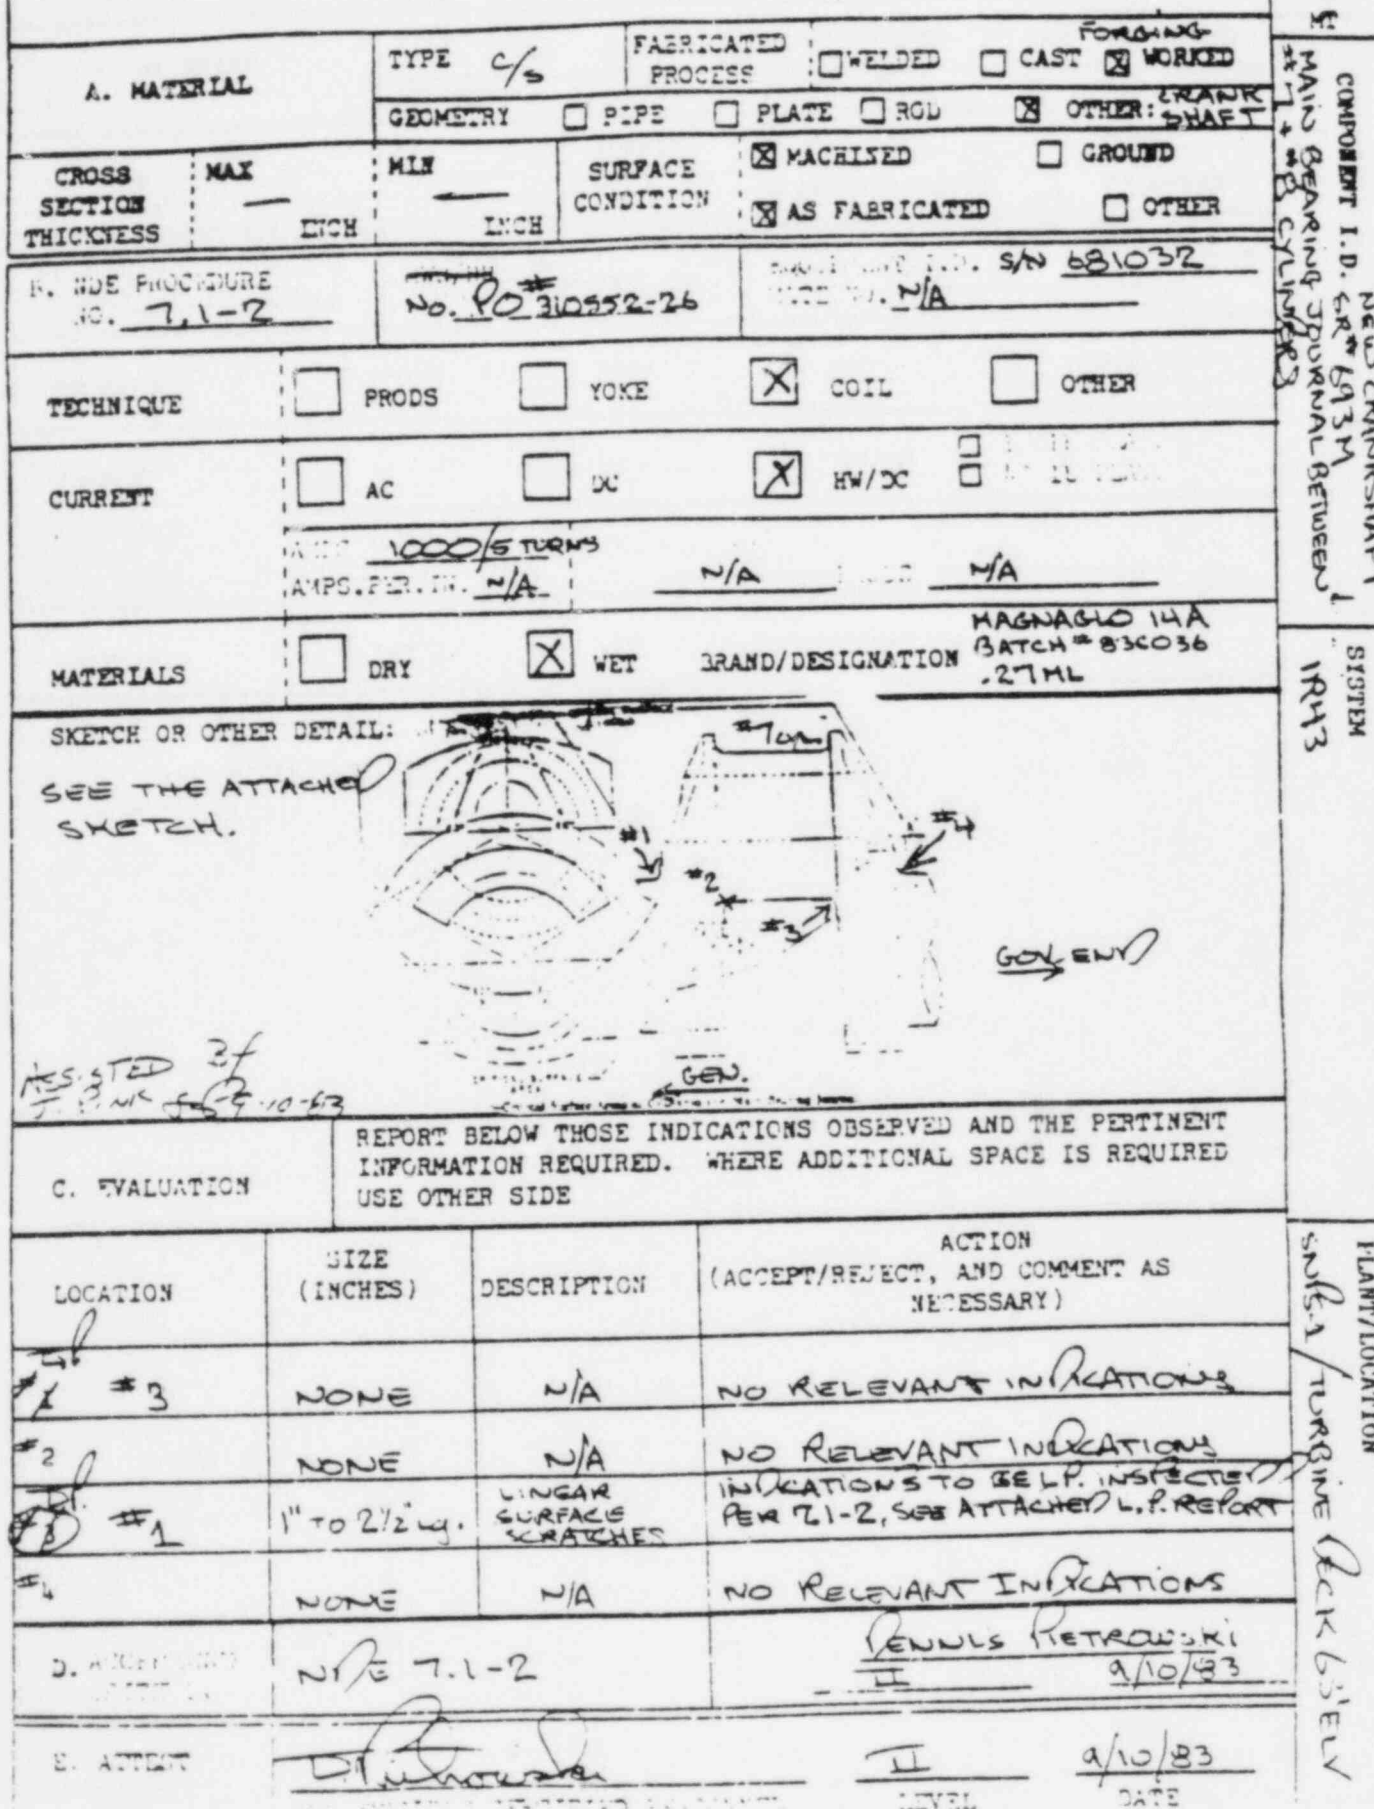 A. MATERIAL
TYPE C/S
FABRICATED PROCESS
FORGING
☐ WELDED ☐ CAST ☒ WORKED
GEOMETRY ☐ PIPE ☐ PLATE ☐ ROD ☒ OTHER: CRANK SHAFT
CROSS SECTION THICKNESS
MAX — INCH
MIN — INCH
SURFACE CONDITION
☒ MACHINED ☐ GROUND
☒ AS FABRICATED ☐ OTHER
B. NDE PROCEDURE
NO. 7.1-2
No. PO# 310552-26
S/N 681032
N/A
TECHNIQUE
☐ PRODS ☐ YOKE ☒ COIL ☐ OTHER
CURRENT
☐ AC ☐ DC ☒ HW/DC ☐
☐
AMPS 1000/5 TURNS
AMPS.PER.IN. N/A N/A N/A
MATERIALS
☐ DRY ☒ WET BRAND/DESIGNATION MAGNAGLO 14A
BATCH # 83C036
.27 ML
SKETCH OR OTHER DETAIL:
SEE THE ATTACHED
SKETCH.
#1
#2
#3
#4
GOV. END
GEN.
ASSISTED BY
C. EVALUATION
REPORT BELOW THOSE INDICATIONS OBSERVED AND THE PERTINENT
INFORMATION REQUIRED. WHERE ADDITIONAL SPACE IS REQUIRED
USE OTHER SIDE
LOCATION
SIZE
(INCHES)
DESCRIPTION
ACTION
(ACCEPT/REJECT, AND COMMENT AS
NECESSARY)
#3 NONE N/A NO RELEVANT INDICATIONS
#2 NONE N/A NO RELEVANT INDICATIONS
#1 1" TO 2 1/2" Lg. LINEAR SURFACE SCRATCHES
INDICATIONS TO BE L.P. INSPECTED
PER 7.1-2, SEE ATTACHED L.P. REPORT
#4 NONE N/A NO RELEVANT INDICATIONS
D.
NDE 7.1-2
DENNIS PIETROWSKI
II 9/10/83
E. ATTEST
II 9/10/83
LEVEL DATE
MT
COMPONENT I.D.
NEW CRANKSHAFT
SR# 693M
MAIN BEARING JOURNAL BETWEEN
#7 + #8 CYLINDERS
SYSTEM
1R43
PLANT/LOCATION
SNPS-1/TURBINE DECK 63' ELV